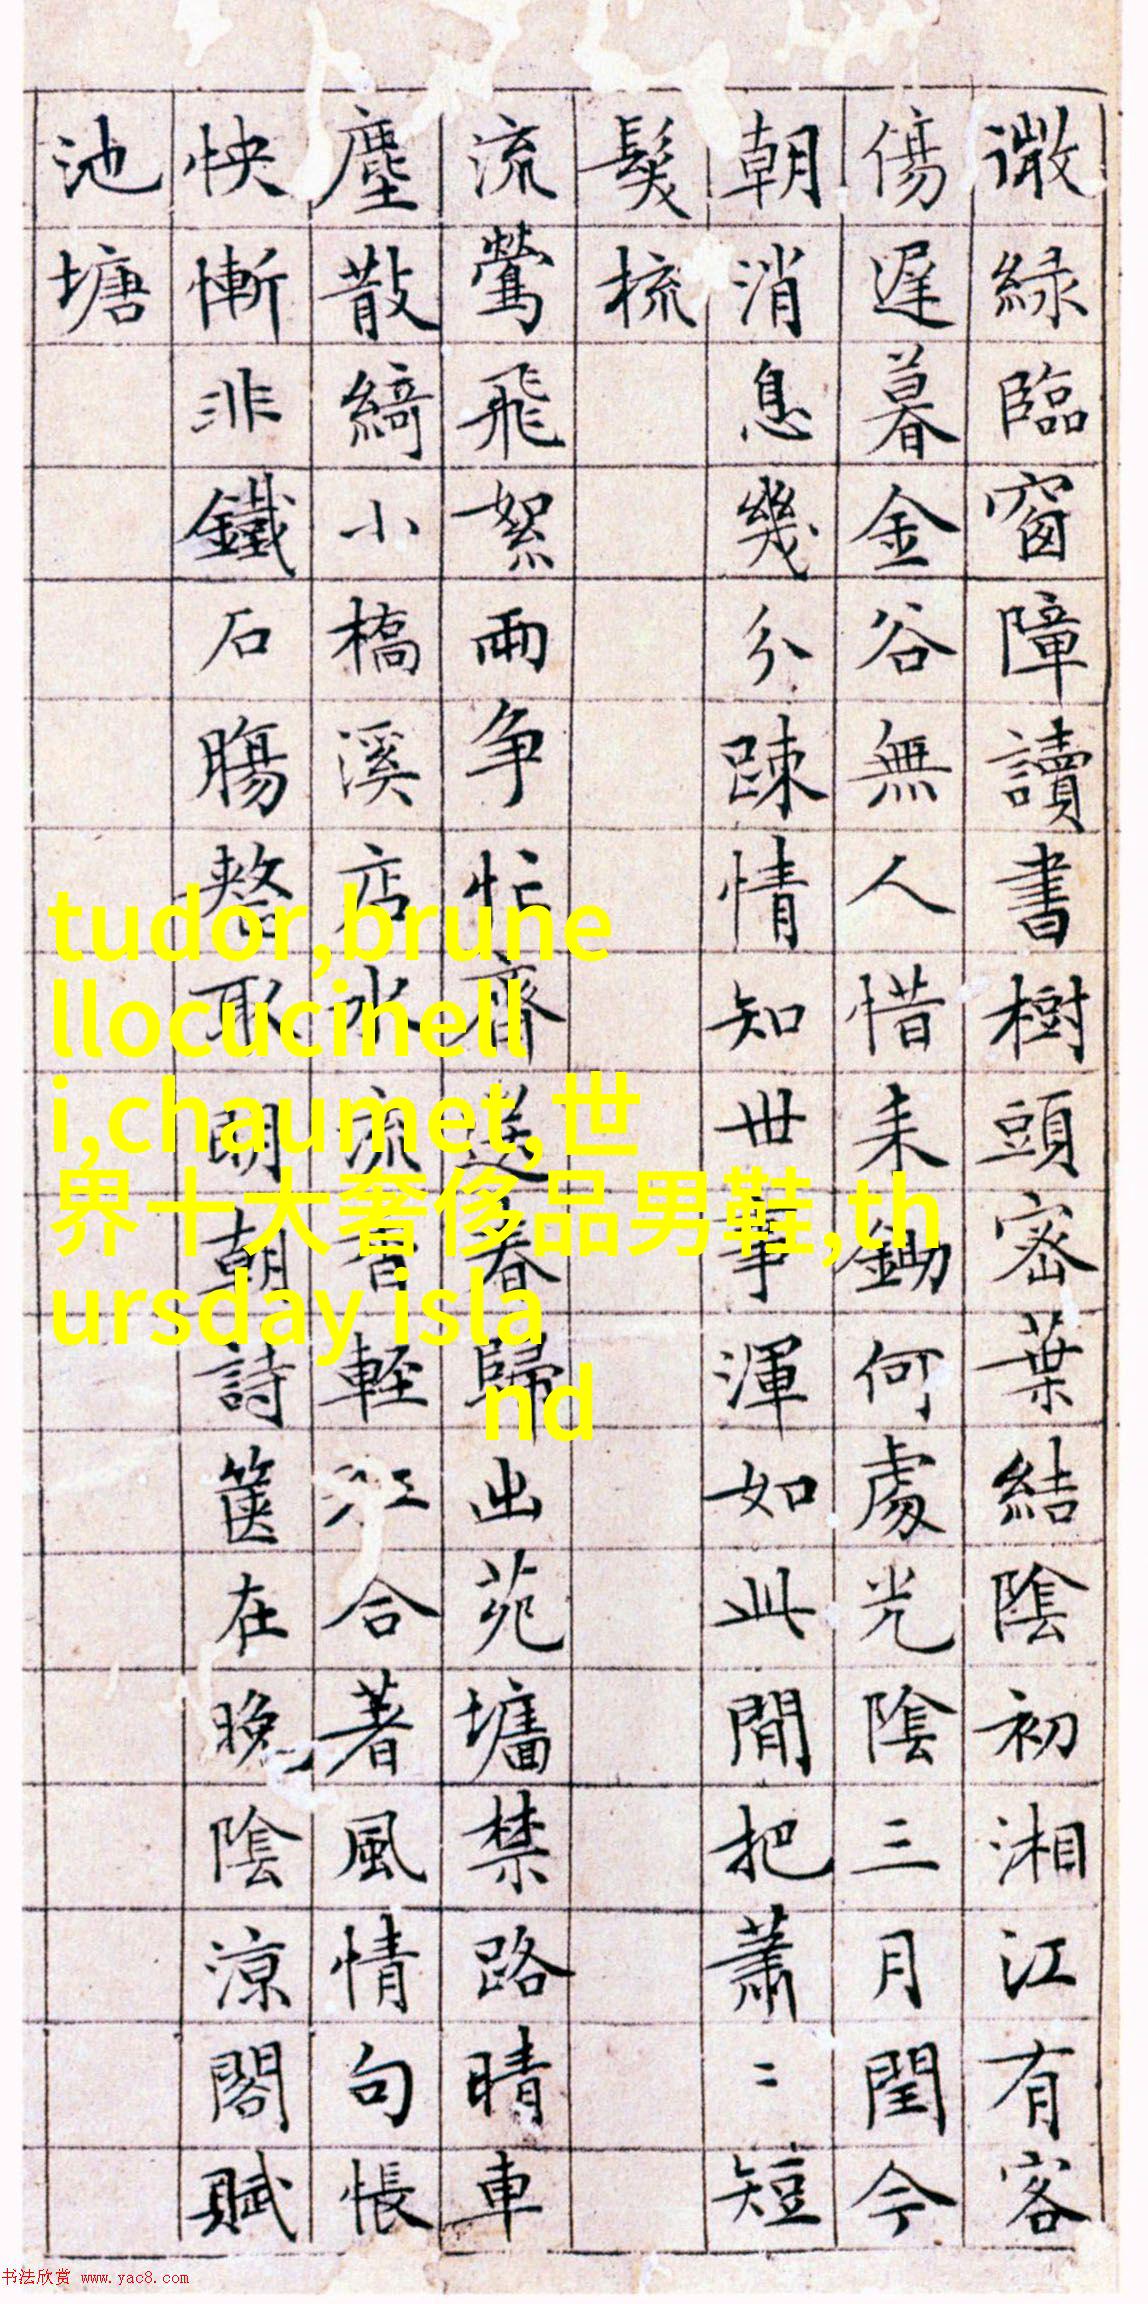 微綠臨窗障讀書樹頭密葉結陰初湘江有客
傷遲暮金谷無人惜耒鋤何處光陰三月閏今
朝消息幾分踈情知世事渾如此閒把蕭〻短
髮梳
流鶯飛絮兩争忙齊送春歸出苑墻禁路晴車
塵散綺小橋溪店水流香輕江合著風情句悵
怏慚非鐵石腸取明朝詩篋在晚陰涼閣賦
池塘
tudor,brune
llocucinell
i,chaumet,世
界十大奢侈品男鞋,th
ursday isla
nd
书法欣赏 www.yac8.com